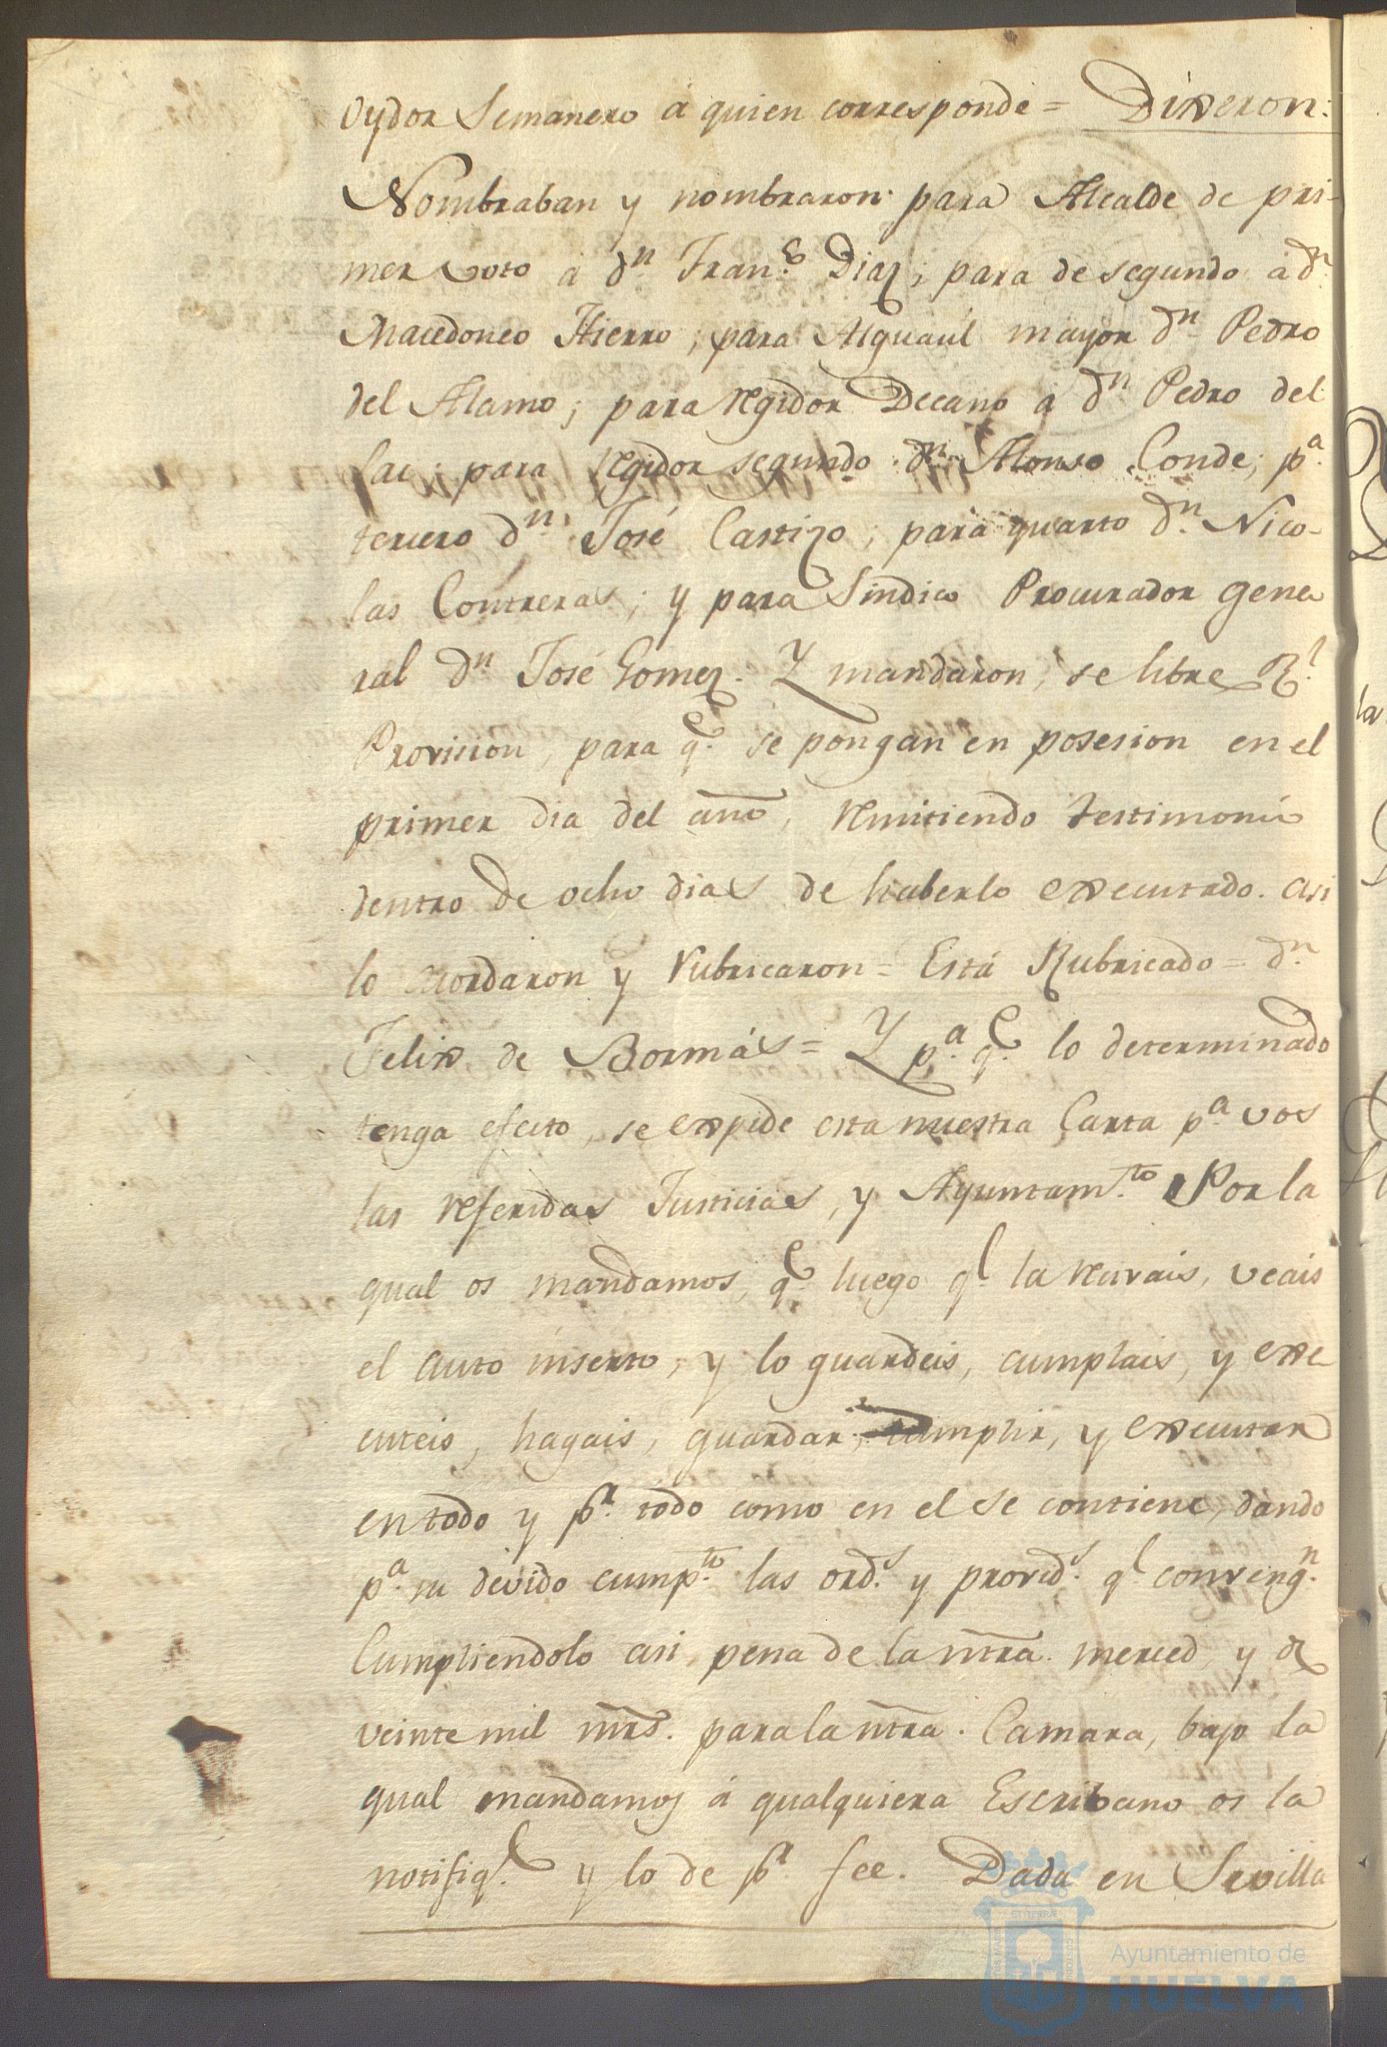 Oydor Semanero á quien corresponde = Dixeron:
Nombraban y nombraron para Alcalde de pri-
mer voto á Dn Fran.co Diaz; para de segundo á Dn
Macedoneo Hierro; para Alguacil mayor Dn Pedro
del Alamo; para Regidor Decano á Dn Pedro del
Sac; para Regidor segundo Dn Alonso Conde; p.a
tercero Dn José Castizo; para quarto Dn Nico-
las Contreras; y para Sindico Procurador gene
ral Dn José Gomez. Y mandaron, se libre R.l
Provision, para q.e se pongan en posesion en el
primer dia del año, remitiendo testimonio
dentro de ocho dias de haberlo executado. asi
lo acordaron y rubricaron = Está Rubricado = Dn
Felix de Bormás = Y p.a q.e lo determinado
tenga efecto, se expide esta nuestra Carta p.a vos
las referidas Justicias, y Ayuntam.to Por la
qual os mandamos, q.e luego q.e la recivais, veais
el auto inserto, y lo guardeis, cumplais, y exe
cuteis, hagais, guardar, cumplir, y executar
en todo y p.r todo como en el se contiene, dando
p.a su devido cump.to las ord.s y provid.s q.e conveng.n
Cumpliendolo asi, pena de la ntra. merced, y de
veinte mil mrs. para la ntra. Camara, bajo la
qual mandamos á qualquiera Escribano os la
notifiq.e y lo de p.r fee. Dada en Sevilla
la
Ayuntamiento de
HUELVA